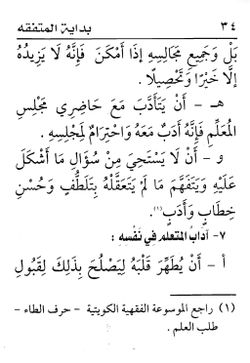 ٣٤ بداية المتفقه
بَلْ وَجَمِيعِ مَجَالِسِهِ إِذَا أَمْكَنَ فَإِنَّهُ لَا يَزِيدُهُ
إِلَّا خَيْرًا وَتَحْصِيلًا .
هـ - أَنْ يَتَأَدَّبَ مَعَ حَاضِرِي مَجْلِسِ
الْمُعَلِّمِ فَإِنَّهُ أَدَبٌ مَعَهُ وَاحْتِرَامٌ لِمَجْلِسِهِ .
و - أَنْ لَا يَسْتَحِيَ مِنْ سُؤَالِ مَا أَشْكَلَ
عَلَيْهِ وَيَتَفَهَّمَ مَا لَمْ يَتَعَقَّلْهُ بِتَلَطُّفٍ وَحُسْنِ
خِطَابٍ وَأَدَبٍ (١) .
٧- آداب المتعلم في نفسه :
أ - أَنْ يُطَهِّرَ قَلْبَهُ لِيَصْلُحَ بِذَلِكَ لِقَبُولِ
(١) راجع الموسوعة الفقهية الكويتية - حرف الطاء -
طلب العلم .